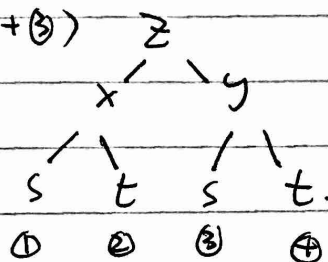 +③) Z
x y
s t s t.
① ② ③ ④